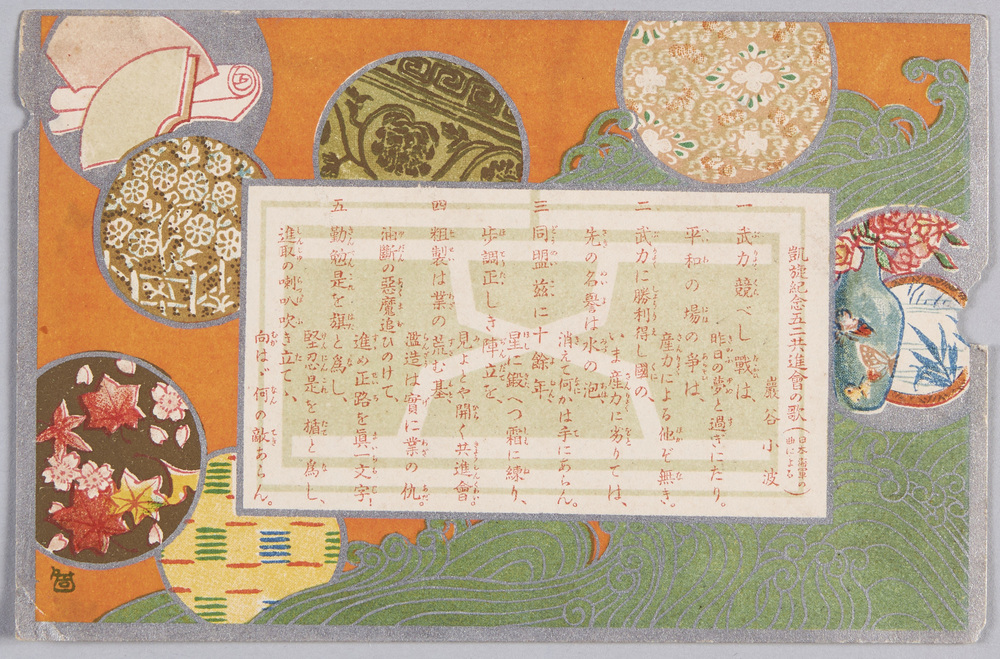 凱旋紀念五二共進會の歌(日本海軍の曲による)
巖谷小波
一 武力競べし戰は、
昨日の夢と過ぎにたり。
平和の場の爭は、
産力による他ぞ無き。
二 武力に勝利得し國の、
いま産力に劣りては、
先の名譽は水の泡
消えて何かは手にあらん。
三 同盟茲に十餘年
星に鍛へつ霜に練り、
歩調正しき陣立を、
見よしや開く共進會。
四 粗製は業の荒む基
濫造は實に業の仇。
油斷の惡魔追ひのけて、
進め正路を眞一文字!
五 勤勉是を旗と爲し、
堅忍是を楯と爲し、
進取の喇叭吹き立てゝ、
向はゞ何の敵あらん。